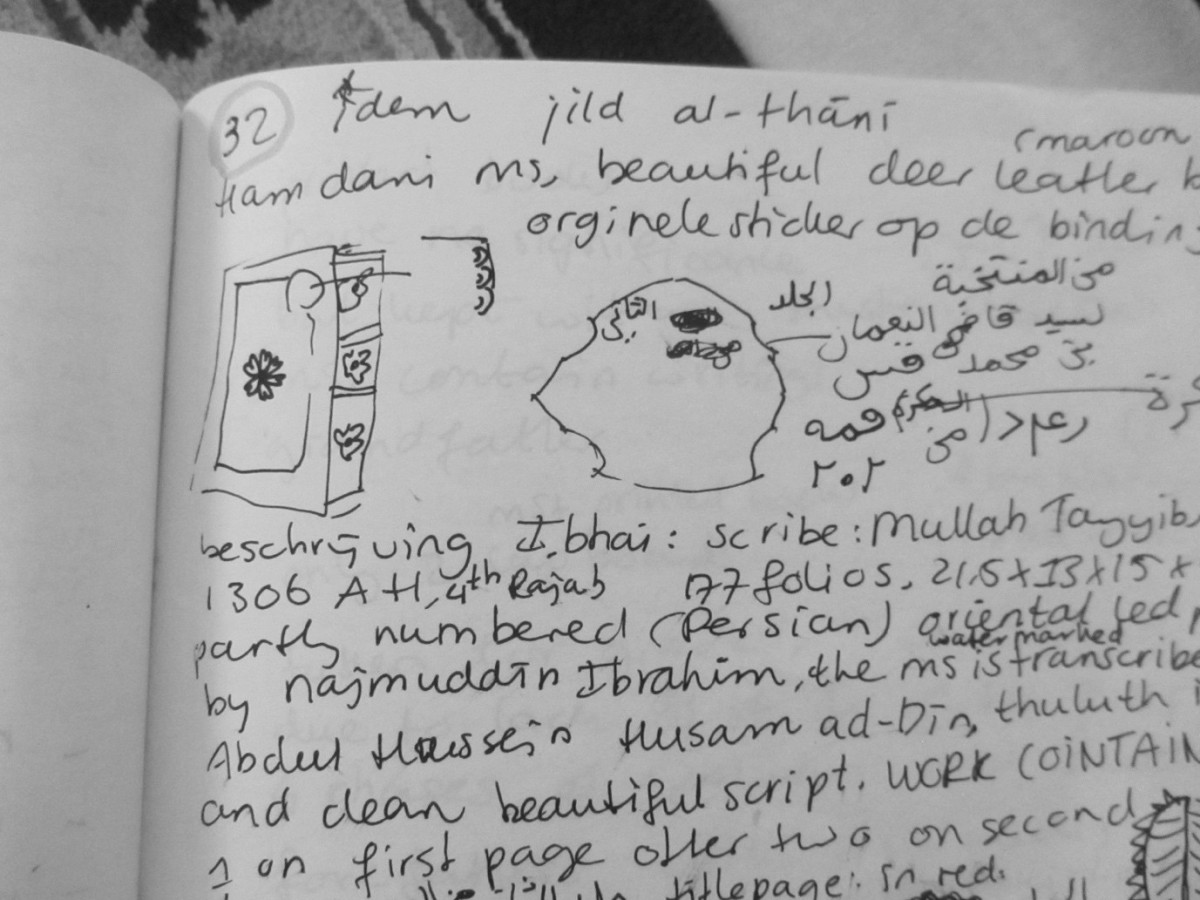 32 Idem jild al-thānī
(maroon
Hamdani ms, beautiful deer leather
orginele sticker op de binding
الجلد
الثاني
من المنتخبة
لسيد قاضي النعمان
بن محمد قس
قمه من
٢٠٢
beschrijving I.bhai: scribe: Mullah Tayyib,
1306 AH, 4th Rajab 177 folios, 21,5 x 13 x 15 x
partly numbered (Persian) oriental led
watermarked
by najmuddīn Ibrahim, the ms is transcribe
Abdul Hussein Husam ad-Dīn, thuluth
and clean beautiful script. WORK COINTAIN
1 on first page otter two on second
titlepage: in red.